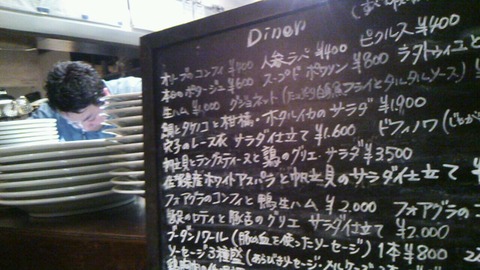 Diner
オリーブのコンフィ ¥400 人参ラペ ¥400 ピクルス ¥400
本日のポタージュ ¥600 スープドポワソン ¥800 ラタトゥイユと
生ハム ¥1,000 グジョネット(たっぷり白身魚フライとタルタルソース)
鯛とタケノコと柑橘・ホタルイカのサラダ ¥1,900
穴子のレース衣 サラダ仕立て ¥1,600 ドフィノワ(じゃがいも
帆立貝とラングスティーヌと鶏のグリエ・サラダ ¥3500
佐賀産ホワイトアスパラと帆立貝のサラダ仕立て ¥
フォアグラのコンフィと鴨生ハム ¥2,000 フォアグラの
のロティと豚舌のグリエ サラダ仕立て ¥2,000
ブーダンノワール(豚の血を使ったソーセージ) 1本 ¥800
ソーセージ3種盛(あらびきソーセージ・メルゲーズ